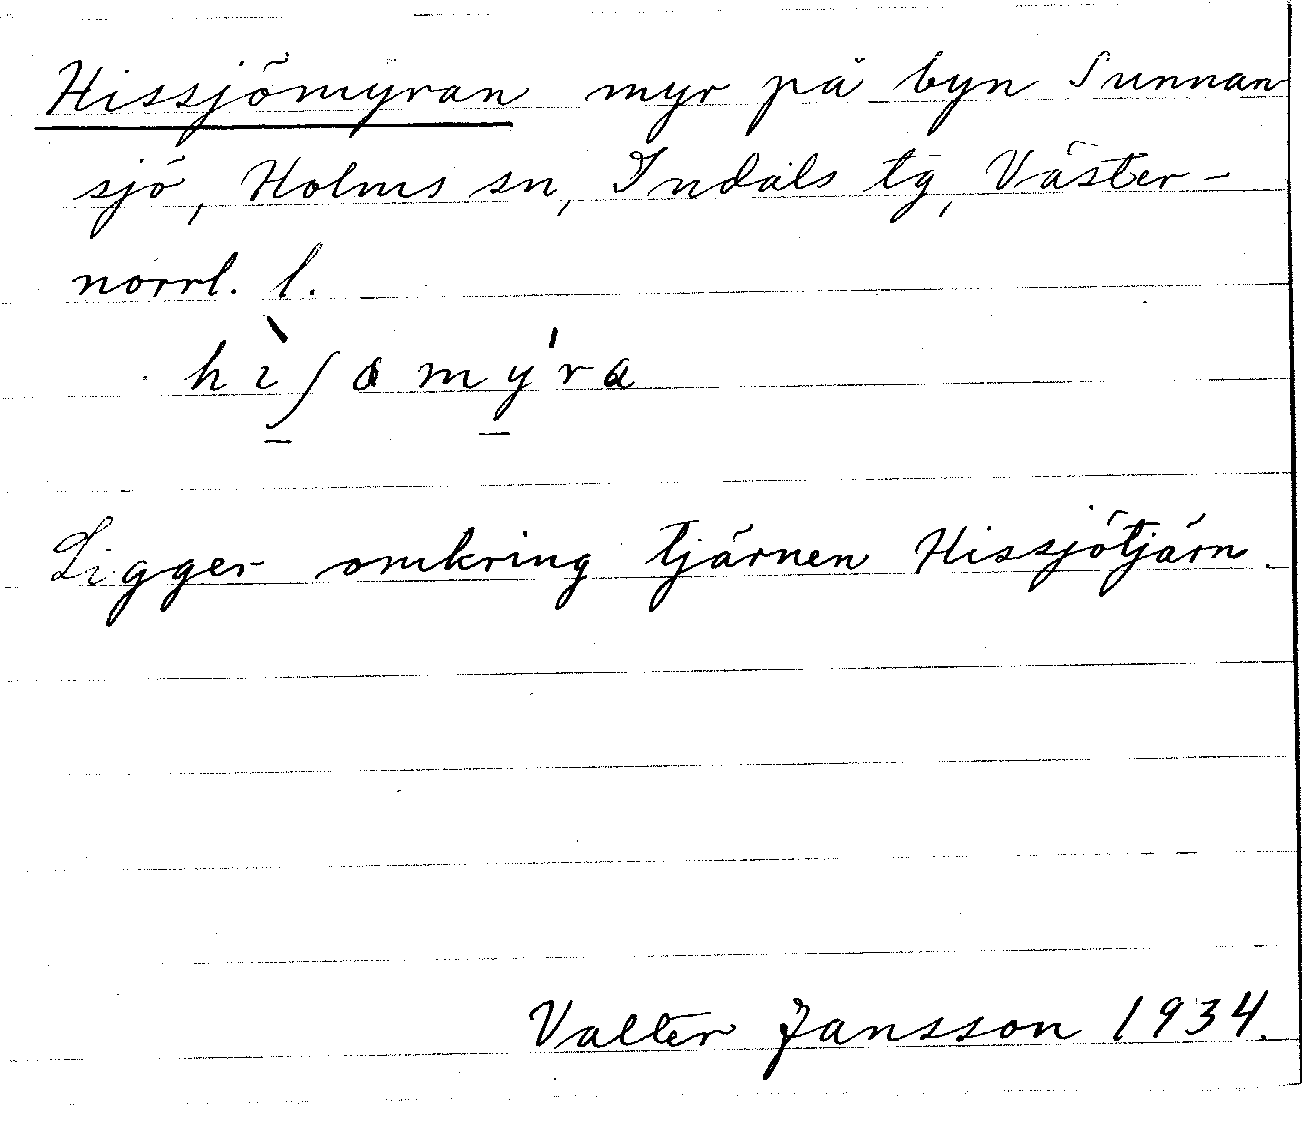 Hissjömyran myr på byn Sunnan
sjö, Holms sn, Indals tg, Väster-
norrl. l.
hı̀ʃɷmy̍ra
Ligger omkring tjärnen Hissjötjärn.
Valter Jansson 1934.